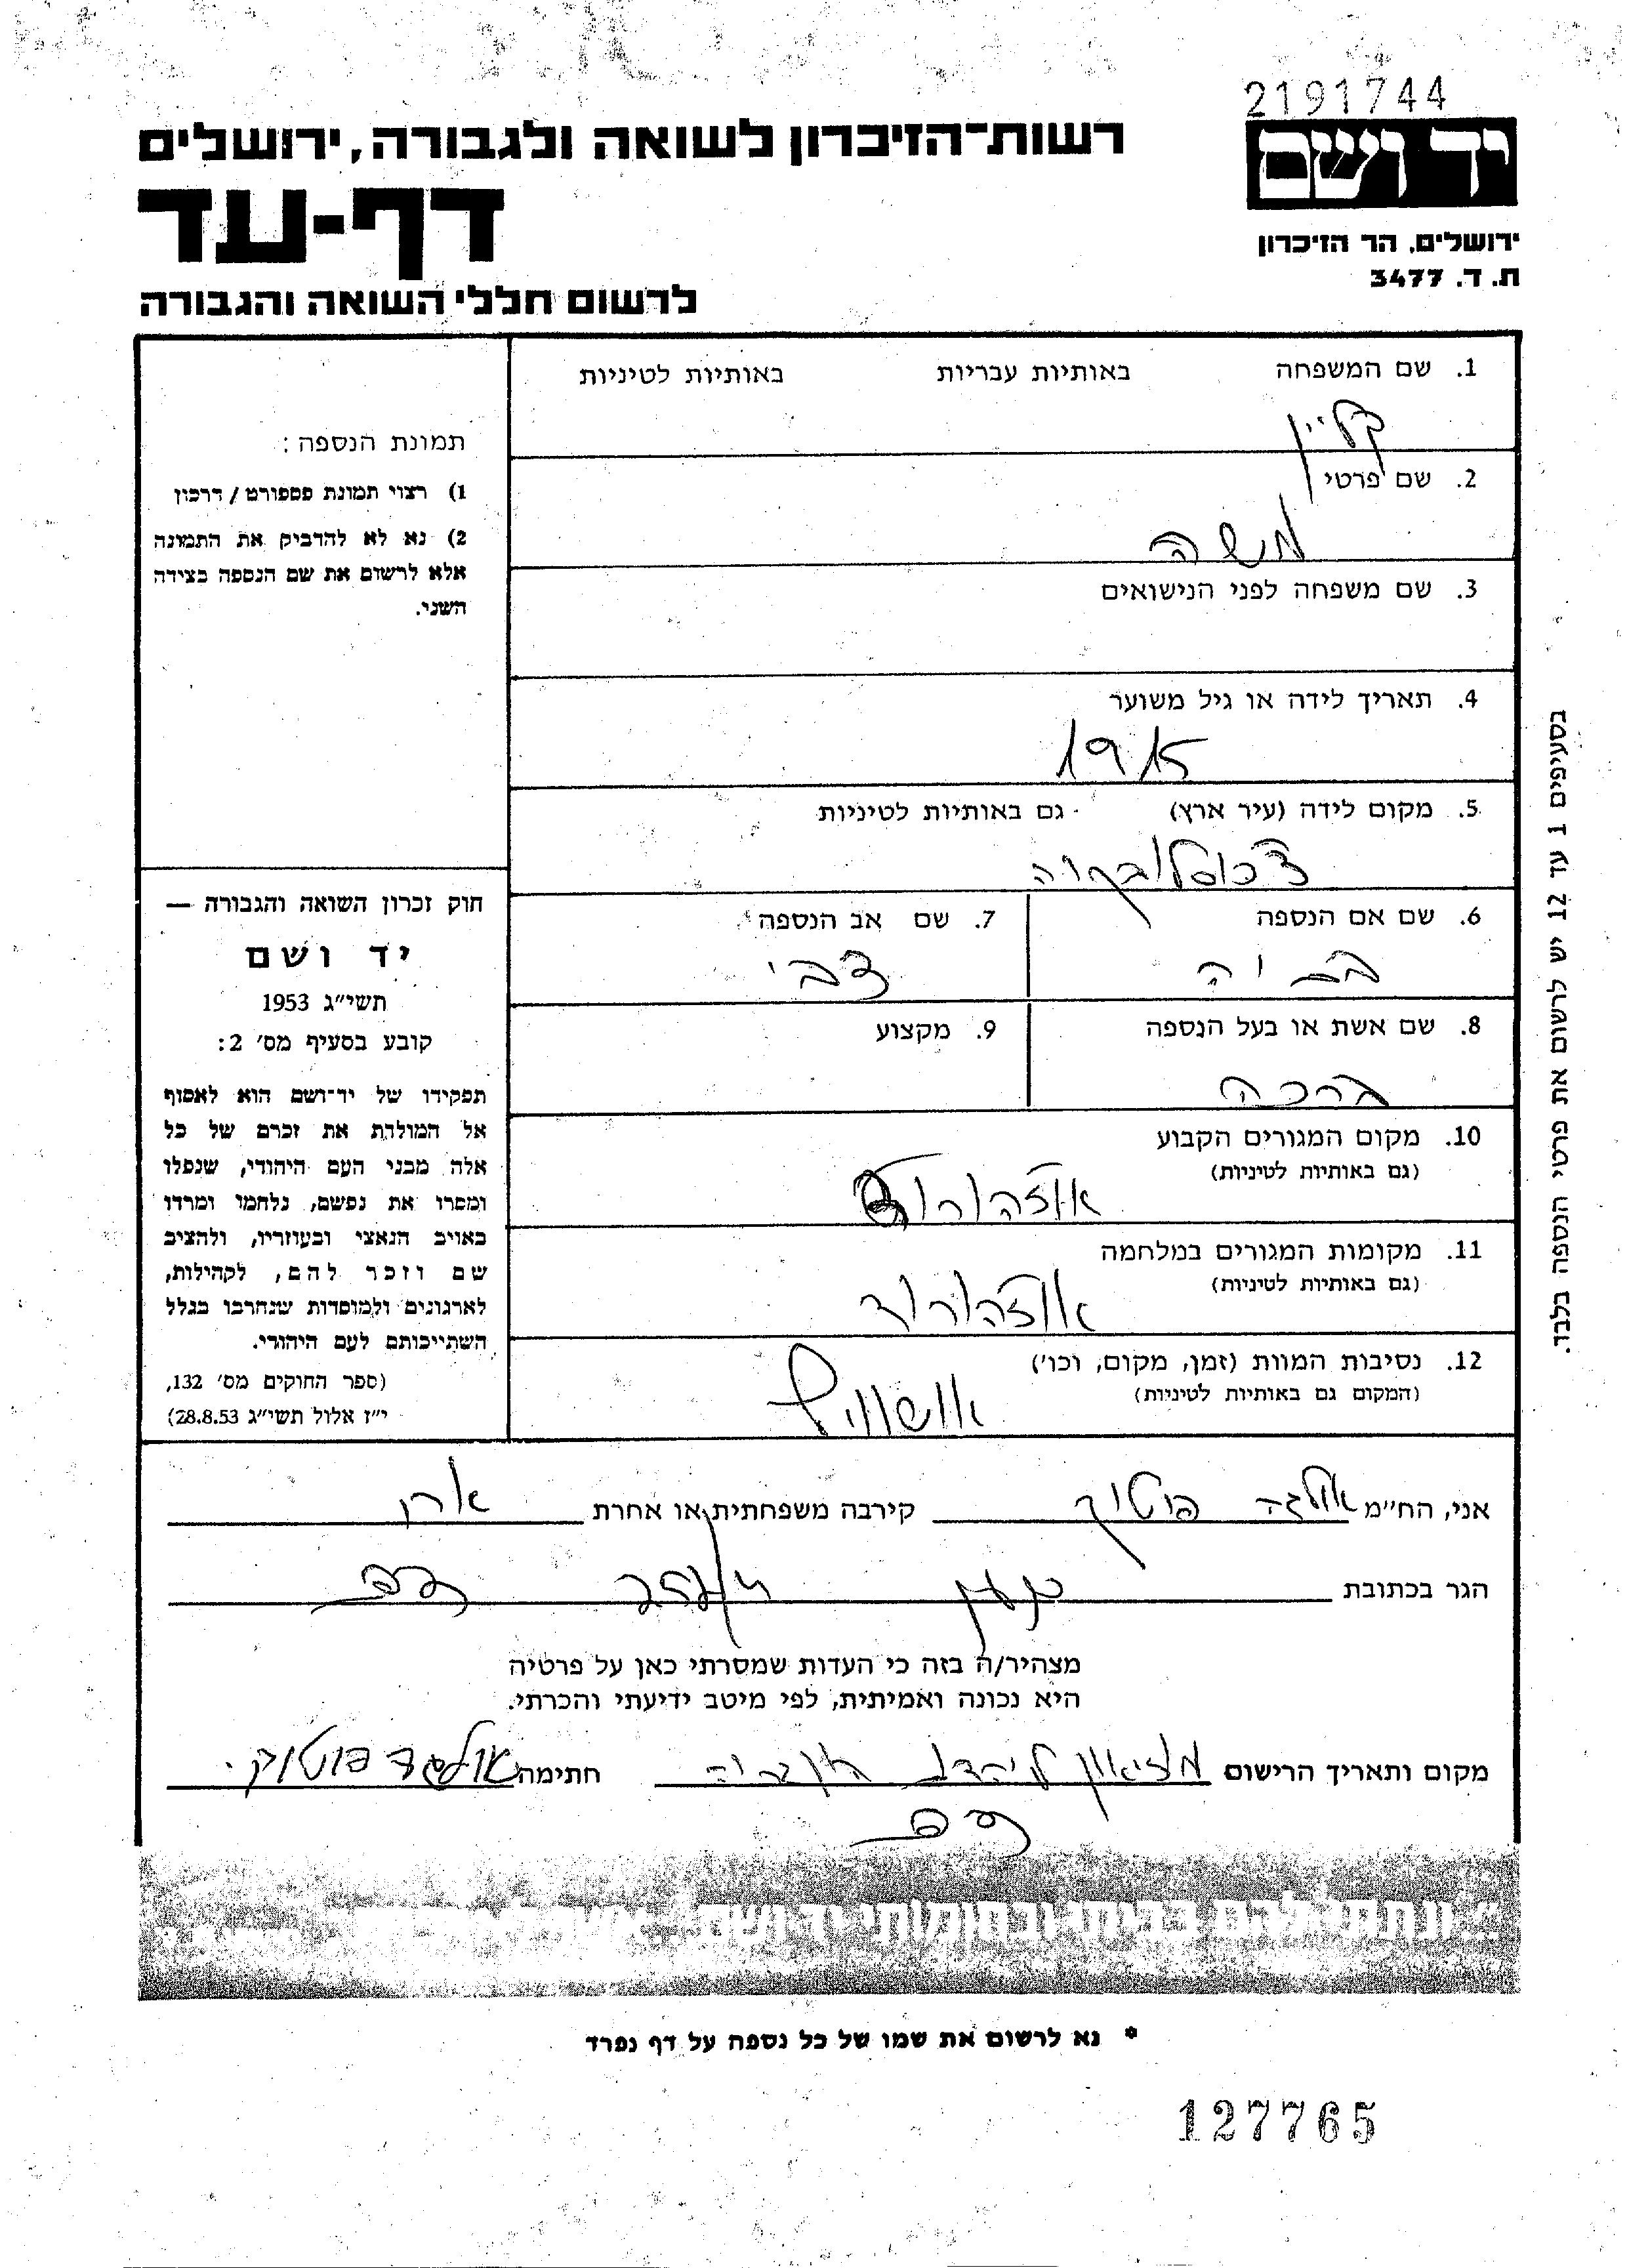 2191744
יד ושם
רשות־הזיכרון לשואה ולגבורה, ירושלים
דף-עד
ירושלים, הר הזיכרון
ת. ד. 3477
לרשום חללי השואה והגבורה
1. שם המשפחה באותיות עבריות באותיות לטיניות
קליין
2. שם פרטי
משה
3. שם משפחה לפני הנישואים
4. תאריך לידה או גיל משוער
5. מקום לידה (עיר ארץ) - גם באותיות לטיניות
צ'כוסלובקיה
6. שם אם הנספה
7. שם אב הנספה
צבי
8. שם אשת או בעל הנספה
ברכה
9. מקצוע
10. מקום המגורים הקבוע
(גם באותיות לטיניות)
אוזהורוד
11. מקומות המגורים במלחמה
(גם באותיות לטיניות)
אוזהורוד
12. נסיבות המוות (זמן, מקום, וכו')
(המקום גם באותיות לטיניות)
אושוויץ
תמונת הנספה:
1) רצוי תמונת פספורט / דרכון
2) נא לא להדביק את התמונה
אלא לרשום את שם הנספה בצידה
השני.
חוק זכרון השואה והגבורה —
יד ושם
תשי״ג 1953
קובע בסעיף מס׳ 2:
תפקידו של יד־ושם הוא לאסוף
אל המולדת את זכרם של כל
אלה מבני העם היהודי, שנפלו
ומסרו את נפשם, נלחמו ומרדו
באויב הנאצי ובעוזריו, ולהציב
שם וזכר להם, לקהילות,
לארגונים ולמוסדות שנחרבו בגלל
השתייכותם לעם היהודי.
(ספר החוקים מס׳ 132,
י״ז אלול תשי״ג 28.8.53)
בסעיפים 1 עד 12 יש לרשום את פרטי הנספה בלבד.
אני, הח״מ אולגה קירבה משפחתית או אחרת
הגר בכתובת
מצהיר/ה בזה כי העדות שמסרתי כאן על פרטיה
היא נכונה ואמיתית, לפי מיטב ידיעתי והכרתי.
מקום ותאריך הרישום חתימה אולגה
ונתתי להם בביתי ובחומותי יד ושם
* נא לרשום את שמו של כל נספה על דף נפרד
127765